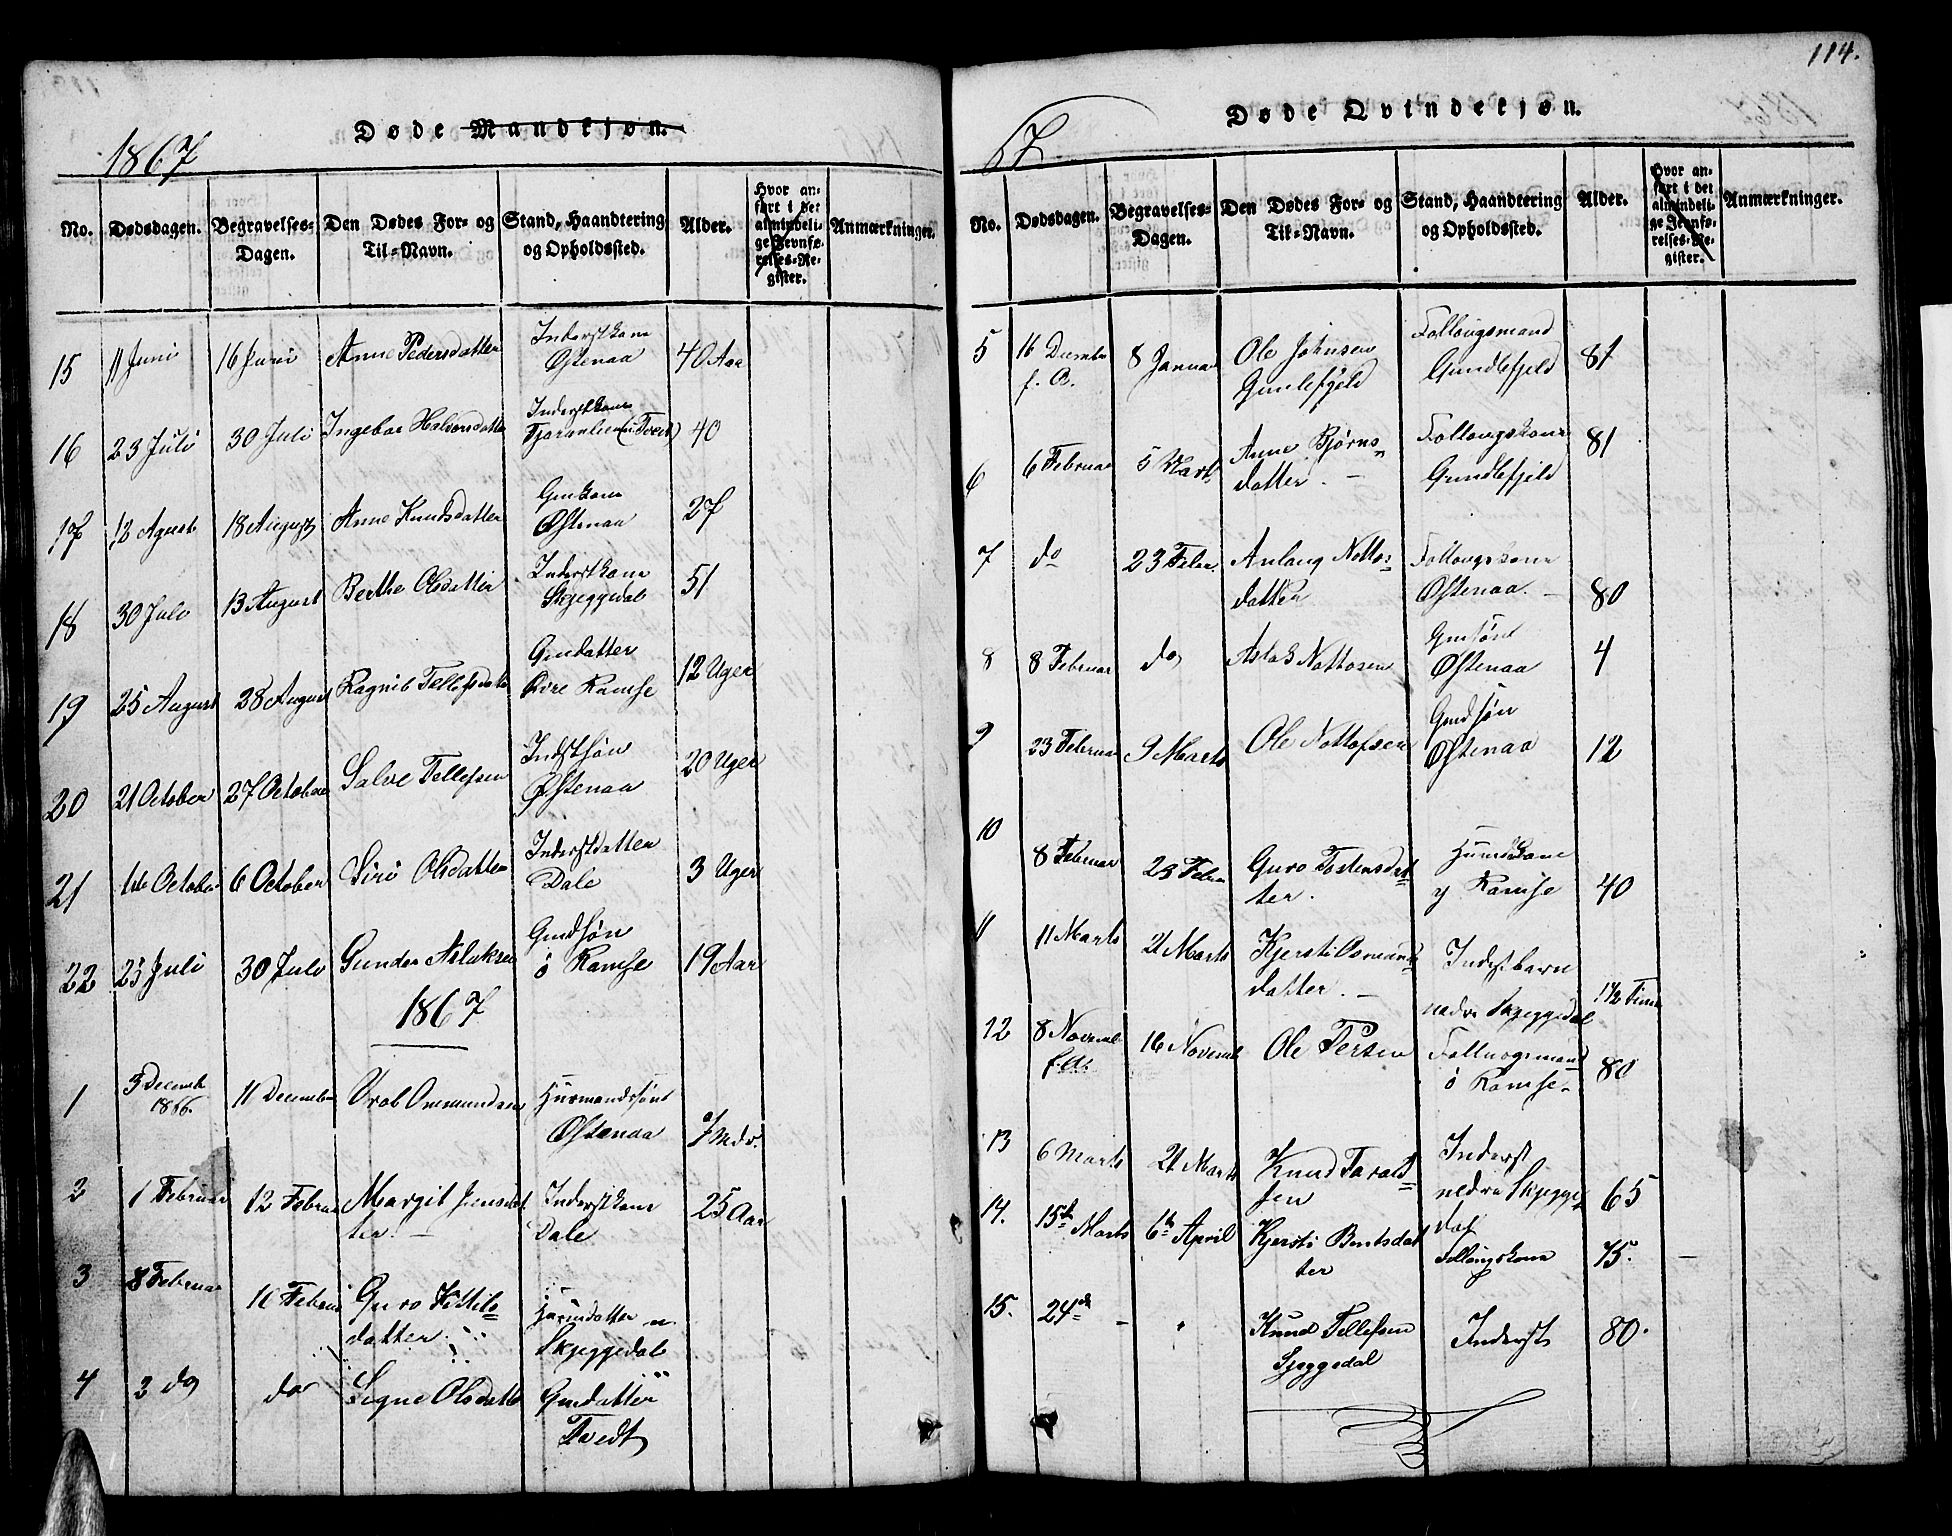 114.
Døde Mandkjøn.
1867
No.
Dødsdagen.
Begravelses-
Dagen.
Den Dødes For- og
Til-Navn.
Stand, Haandtering
og Opholdssted.
Alder.
Hvor an-
ført i det
almindeli-
ge Jevnfø-
relses-Re-
gister.
Anmærkninger.
15 11 Juni 16 Juni Anne Pedersdatter Inderstkone
Østenaa 40 Aar
16 23 Juli 30 Juli Ingebor Halvorsdatter Inderstkone
(Tveit) 40
17 12 Agust 18 August Anne Knudsdatter Gmkone
Østenaa 27
18 30 Juli 13 August Berthe Olsdatter Inderstkone
Skjeggedal 51
19 25 August 28 August Ragnil Tellefsdatter Gmdatter
Øvre Ramse 12 Uger
20 21 October 27 October Salve Tellefsen Indstsøn
Østenaa 20 Uger
21 1ste October 6 October Siri Olsdatter Inderstdatter
Dale 3 Uger
22 23 Juli 30 Juli Gunder Aslaksen Gmdsøn
ö Ramse 19 Aar
1867
1 3 Decemb
1866. 11 December Ommundsen Husmandssønt
Østenaa 7 Mdr.
2 1 Februar 12 Februar Margit Jensdat
ter. Inderstkone
Dale 25 Aar
3 8 Februar 16 Februar Guro Kittils-
datter Husmdatter n
Skjeggedal
4 2 do do Signe Olsdatter Gmdatter
Tvedt
Døde Qvindekjøn.
67
No.
Dødsdagen.
Begravelses-
Dagen.
Den Dødes For- og
Til-Navn.
Stand, Haandtering
og Opholdssted.
Alder.
Hvor an-
ført i det
almindeli-
ge Jevnfø-
relses-Re-
gister.
Anmærkninger.
5 16 Decembr
f. A. 8 Januar Ole Johnsen
Gunlefjeld Follougsmand
Gundlefjeld 81
6 6 Februar 5 Marts Anne Bjørns-
datter. Follougskone
Gundlefjeld 81
7 do 23 Febr. Anlaug Notto-
datter Follougskone
Østenaa. 80
8 8 Februar do Aslak Nottosen Gmsönt
Østenaa 4
9 23 Februar 9 Marts Ole Nottofsen Gmdsøn
Østenaa 12
10 8 Februar 23 Febru Guro Tostensdat-
ter. Husmdkone
y Ramse 40
11 11 Marts 21 Marts Kjersti Osmunds-
datter. Inderstbarn
nedre Skjeggedal 1 1/2 Time
12 8 Novemb
f. A. 16 Novemb Ole Tersen Follougsmand
ö Ramse 80
13 6 Marts 21 Marts Knud Tarald-
sen Inderst
nedre Skjegge-
dal 65
14. 15d Marts 6te April Kjersti Bentsdat
ter Follougskone 75.
15. 24de - " Knud Tellefsen
Sjeggedal Inderst 80.